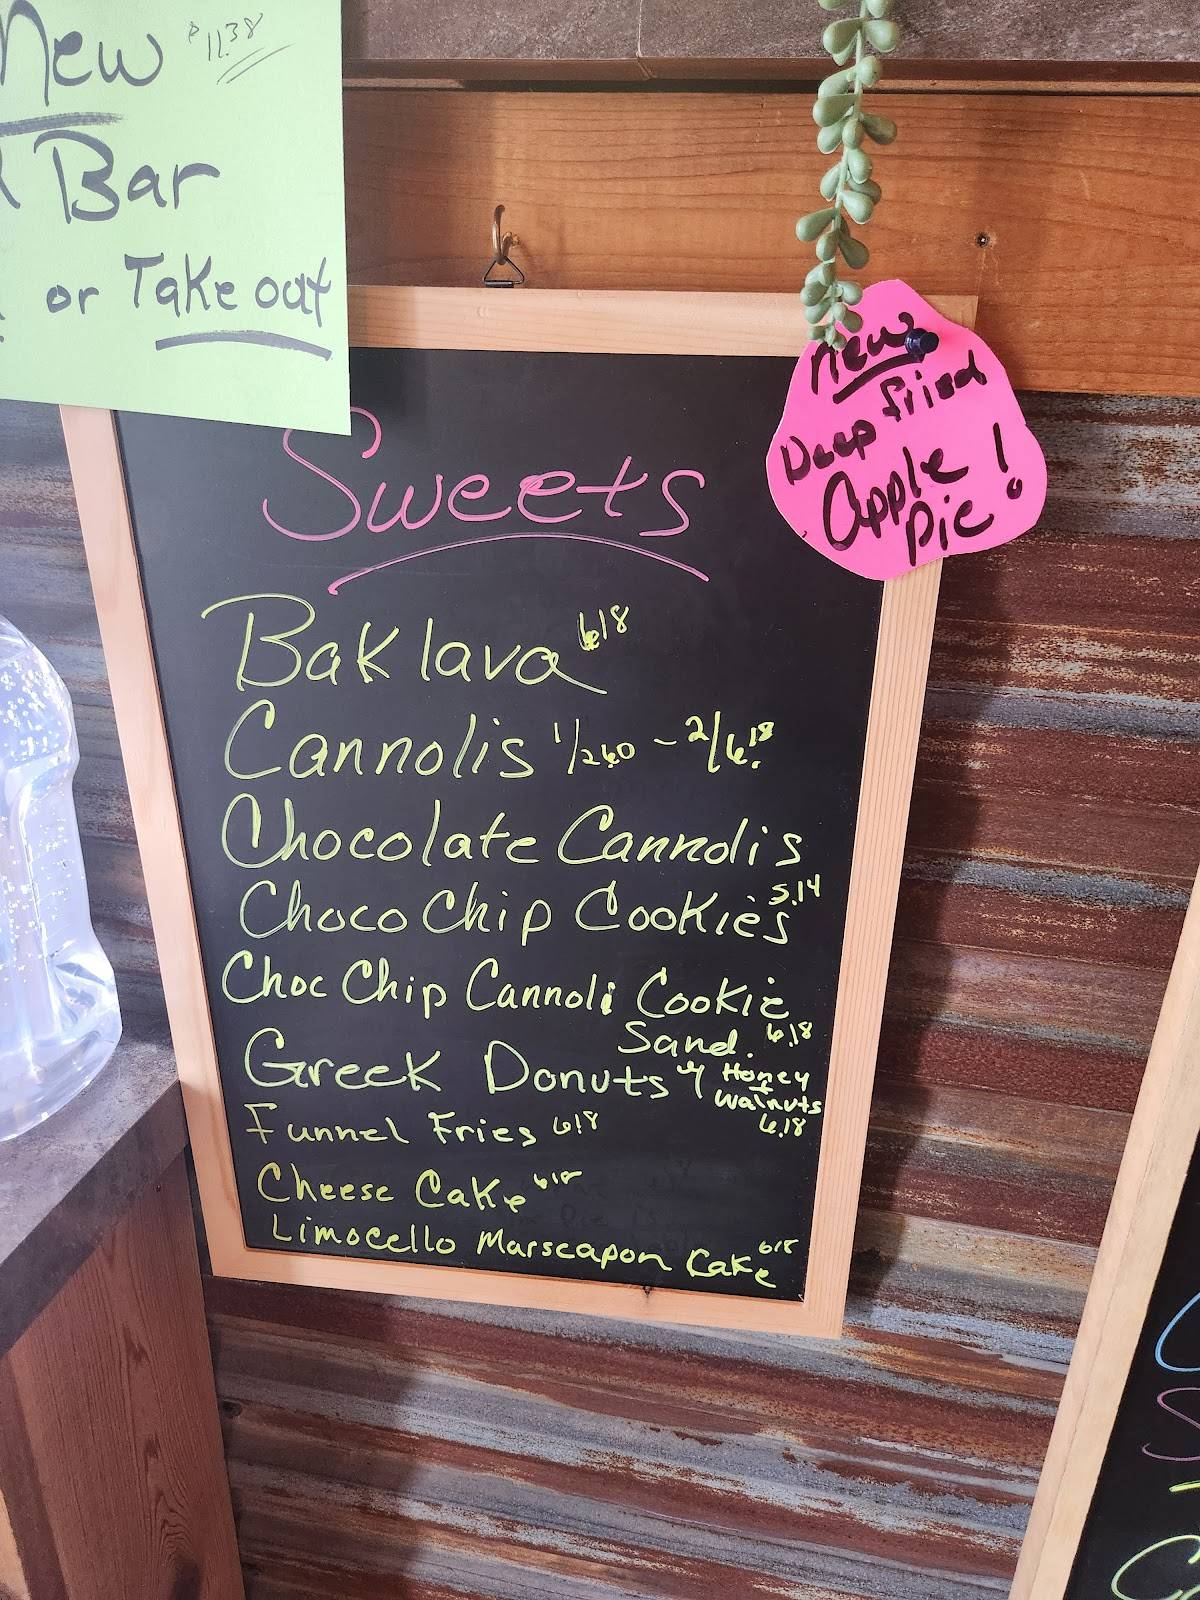 New $11.38
Bar
or Take out
New
Deep fried
Apple
Pie!
Sweets
Baklava 6.18
Cannolis 1/2.60 - 2/6.18
Chocolate Cannolis
Choco Chip Cookies 5.14
Choc Chip Cannoli Cookie
Sand. 6.18
Greek Donuts w/ Honey
+
Walnuts
6.18
Funnel Fries 6.18
Cheese Cake 6.18
Limocello Marscapon Cake 6.18